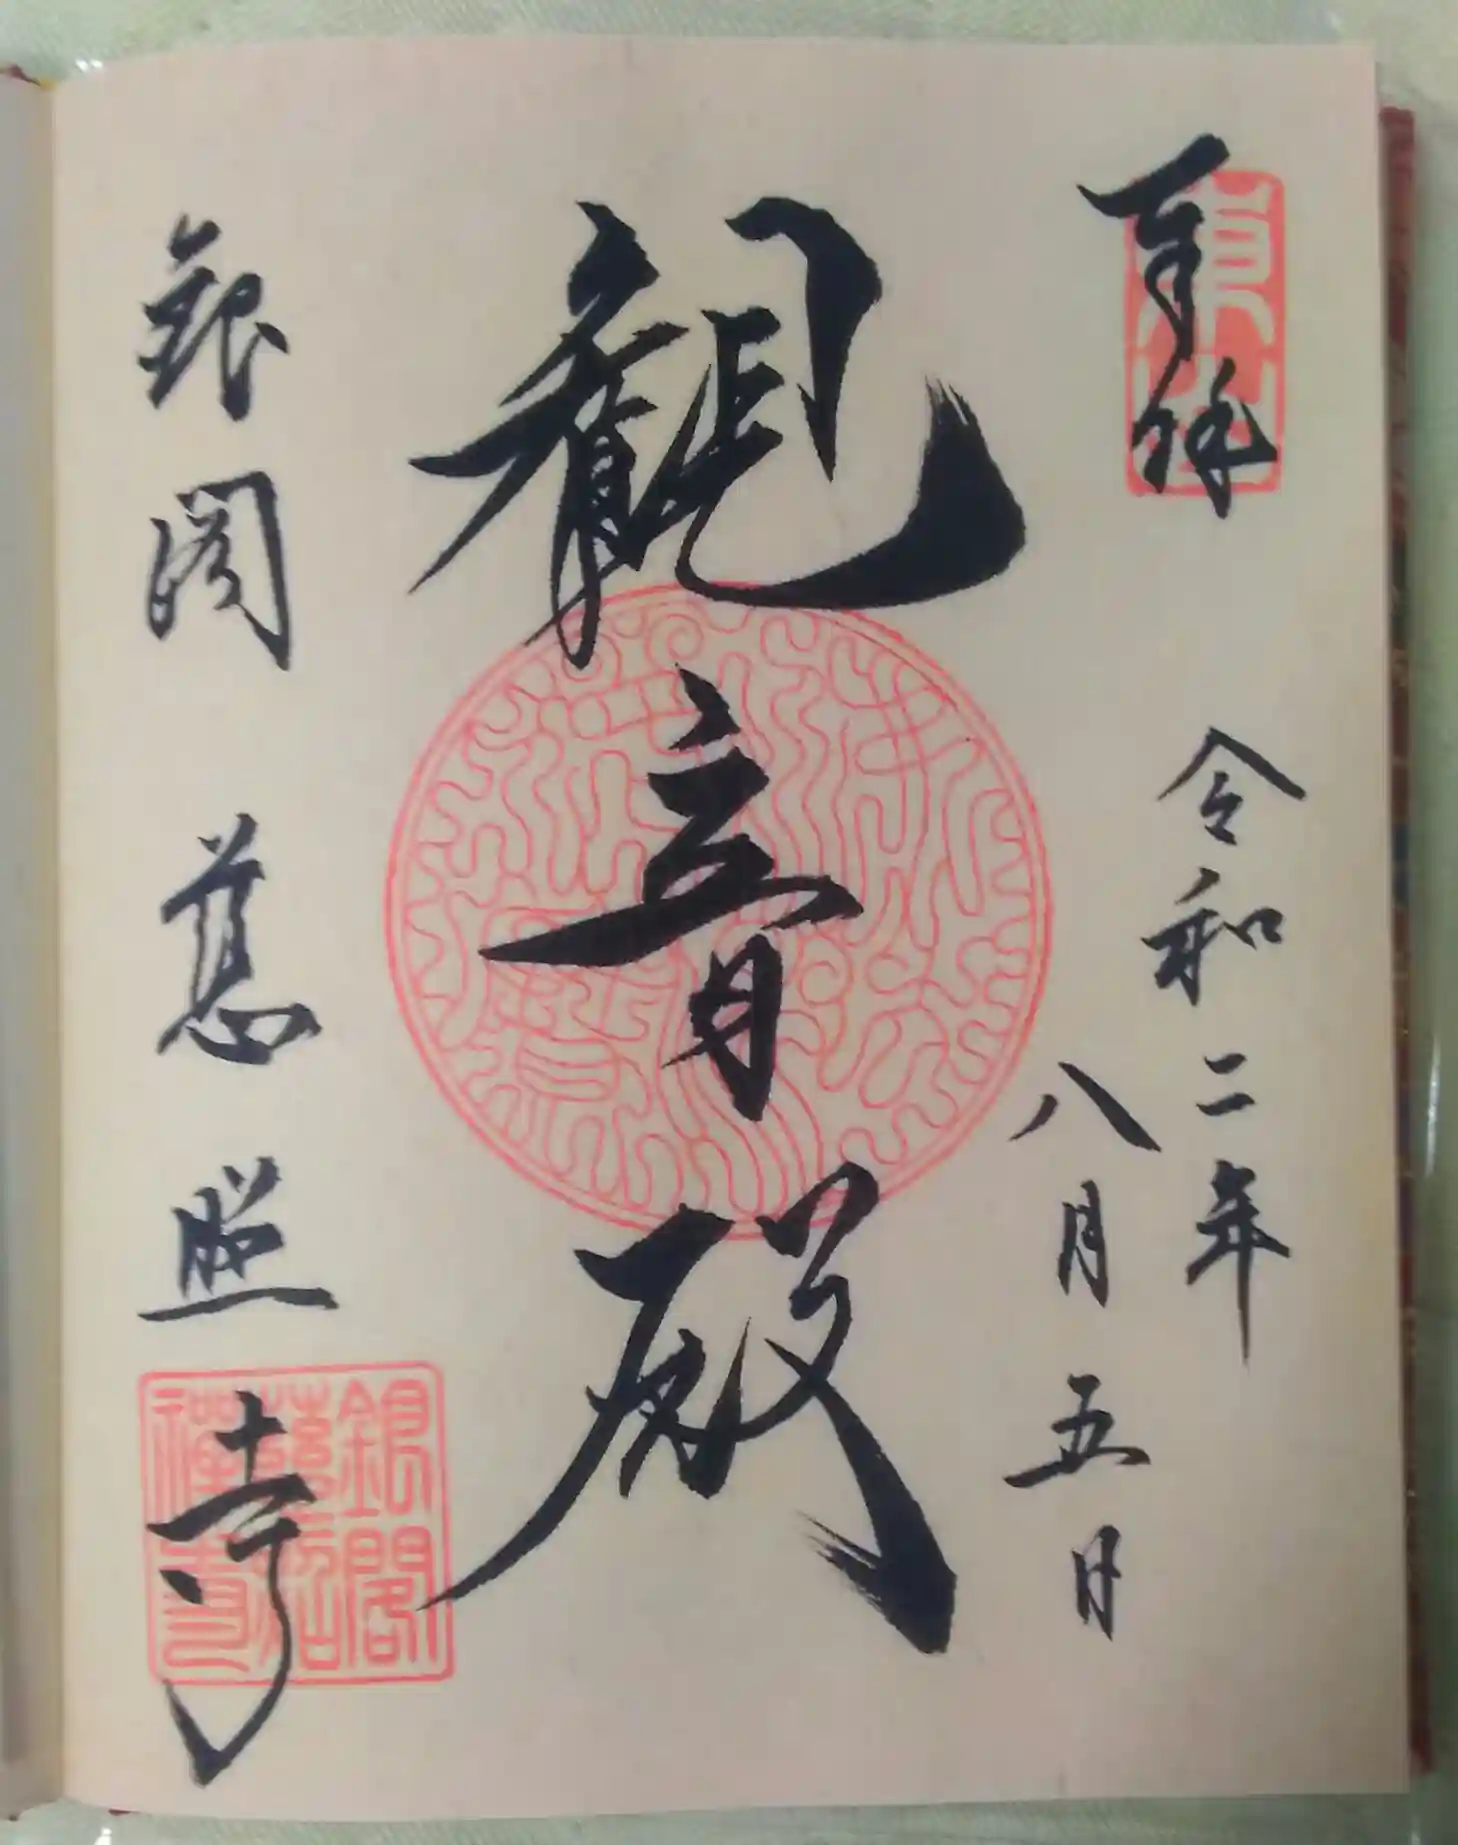 奉拝
東山
令和二年
八月五日
觀音殿
銀閣慈照寺
銀閣
慈照
禅寺